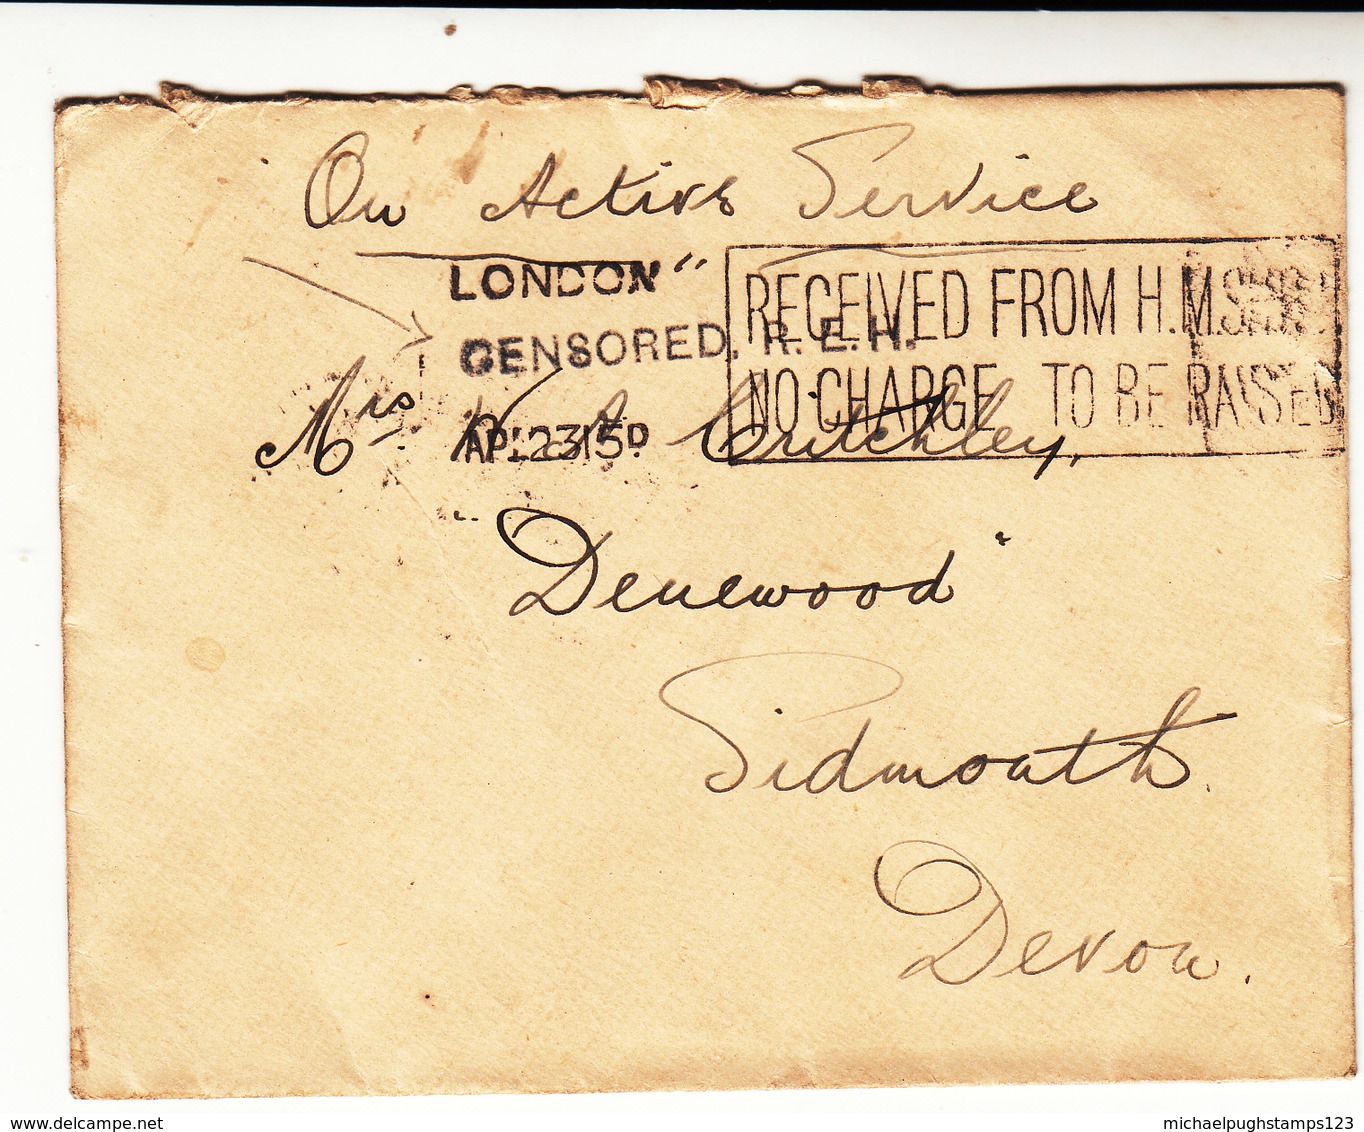 On Active Service
LONDON
CENSORED. R. E. H.
RECEIVED FROM H.M.
NO CHARGE TO BE RAISED
Mrs Critchley,
APL 23 15
"Denewood"
Sidmouth.
Devon.
www.delcampe.net
michaelpughstamps123